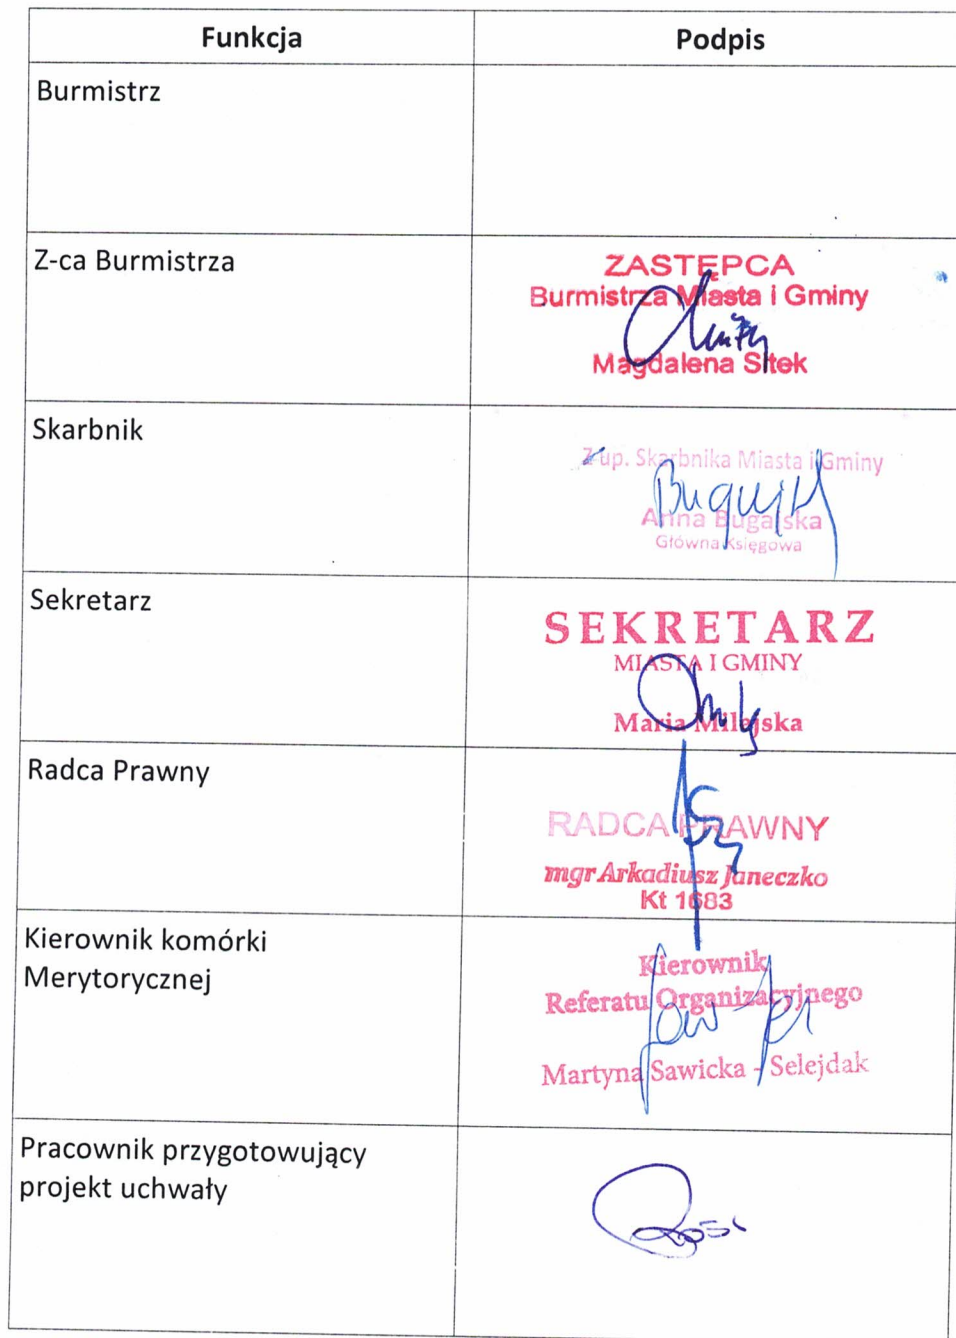 Funkcja
Podpis
Burmistrz
Z-ca Burmistrza
ZASTĘPCA
Burmistrza Miasta i Gminy
Magdalena Sitek
Skarbnik
Z up. Skarbnika Miasta i Gminy
Anna Bugajska
Główna Księgowa
Sekretarz
SEKRETARZ
MIASTA I GMINY
Maria Milejska
Radca Prawny
RADCA PRAWNY
mgr Arkadiusz Janeczko
Kt 1683
Kierownik komórki
Merytorycznej
Kierownik
Referatu Organizacyjnego
Martyna Sawicka - Selejdak
Pracownik przygotowujący
projekt uchwały